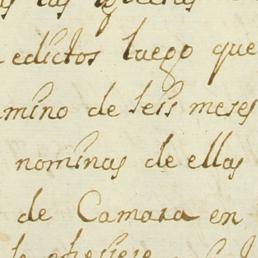 las iglesias
edictos luego que
mino de seis meses
nominas de ellas
de Camara en